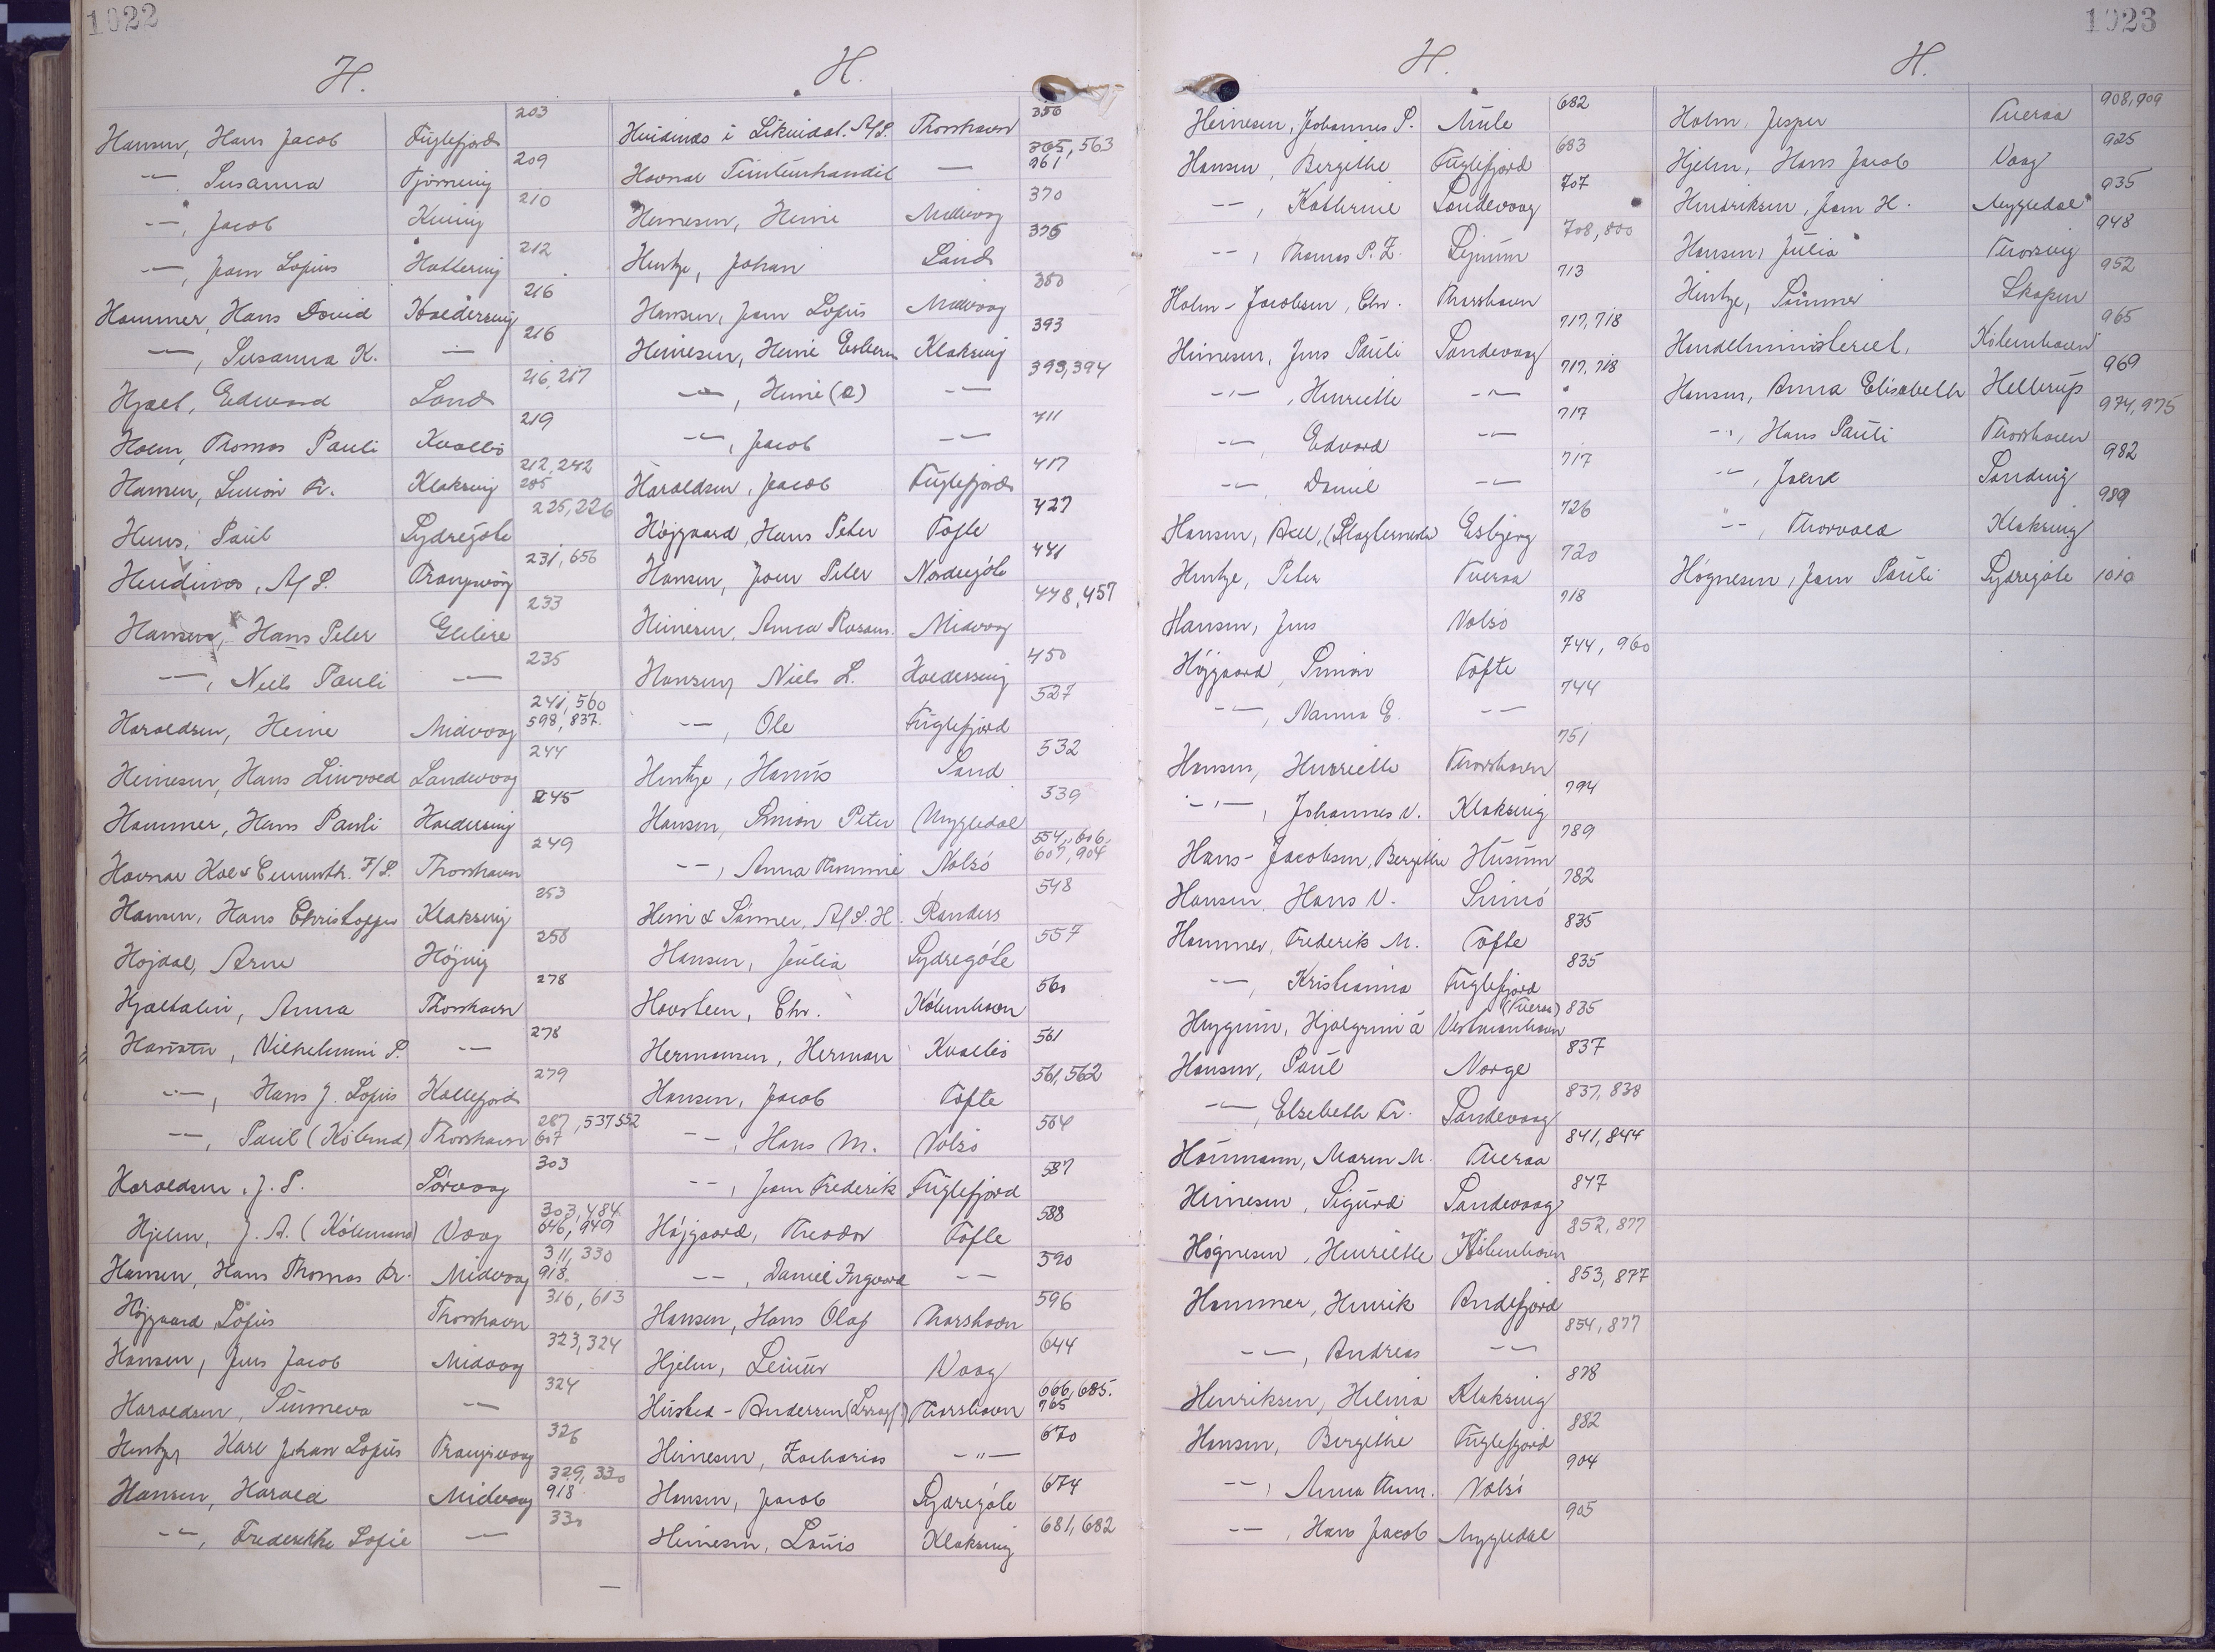 1022
H.
Hansen, Hans Jacob Fuglefjord 203
-"- Susanna Tjörnevig 209
-"-, Jacob Kuning 210
-"-, Joen Lopius Hattervig 212
Hammer, Hans David Haldersvig 216
-"-, Susanna K. -"- 216
Hjalt, Edward Sand 216, 217
Holm, Thomas Pauli Kvalbö 219
Hansen, Simon Fr. Klaksvig 212, 242 285
Huus, Paul Sydregöte 225, 226
Hvidenæs, A/S. Trangisvaag 231, 656
Hansen, Hans Peter Glibre 233
-"-, Niels Pauli -"- 235
Haraldsen, Heine Midvaag 241, 560 598, 837.
Heinesen, Hans Linvald Sandevaag 244
Hammer, Hans Pauli Haldersvig 245
Havnar Kol & Cementh. F/S. Thorshavn 249
Hansen, Hans Christoffer Klaksvig 253
Højdal, Arne Höjvig 258
Hjaltalin, Anna Thorshavn 278
Hansen, Vilhelmine S. -"- 278
-"-, Hans J. Lopius Kollefjord 279
-"-, Paul (Kölmd) Thorshavn 287, 537 552 607
Haraldsen, J. S. Sörvaag 303
Hjelm, J. A. (Kölmand) Vaag 303, 484 646, 949
Hansen, Hans Thomas Fr. Midvaag 311, 330 918.
Höjgaard, Lopius Thorshavn 316, 613
Hansen, Jens Jacob Midvaag 323, 324
Haraldsen, Sunneva -"- 324
Hentze, Karl Johan Lopius Trangisvaag 326
Hansen, Harald Midvaag 329, 330 918
-"-, Frederikke Sofie -"- 330
H.
Hvidenæs i Likvidat. A/S. Thorshavn 350
Havnar Timburhandil -"- 365, 563 961
Heinesen, Heine Midvaag 370
Hentze, Johan Sand 375
Hansen, Joen Lopius Midvaag 380
Heinesen, Heine Esbern Klaksvig 393
-"-, Heine (2) -"- 393, 394
-"-, Jacob -"- 411
Haraldsen, Jacob Fuglefjord 417
Höjgaard, Hans Peter Tofte 427
Hansen, Joen Peter Nordregöte 441
Heinesen, Anna Rosam. Midvaag 448, 457
Hansen, Niels L. Haldersvig 450
-"-, Ole Fuglefjord 527
Hentze, Hanus Sand 532
Hansen, Simon Peter Myggedal 539
-"-, Anna Thomine Nolsö 554, 606, 607, 904
Hein & Sönner, A/S. H. Randers 548
Hansen, Julia Sydregöte 557
Hovsteen, Chr. Köbenhavn 560
Hermansen, Herman Kvalbö 561
Hansen, Jacob Tofte 561, 562
-"-, Hans M. Nolsö 564
-"-, Joen Frederik Fuglefjord 587
Höjgaard, Theodor Tofte 588
-"-, Daniel Ingvard -"- 590
Hansen, Hans Olaf Thorshavn 596
Hjelm, Leinur Vaag 644
Husted-Andersen (Lrsagf) Thorshavn 666, 685. 765
Heinesen, Zacharias -"- 670
Hansen, Jacob Sydregöte 674
Heinesen, Louis Klaksvig 681, 682
1023
H.
Heinesen, Johannes P. Mule 682
Hansen, Bergithe Fuglefjord 683
-"-, Kathrine Sandevaag 707
-"-, Thomas P. Z. Sejnum 708, 800
Holm-Jacobsen, Chr. Thorshavn 713
Heinesen, Jens Pauli Sandevaag 717, 718
-"-, Henriette -"- 717, 718
-"- Edvard -"- 717
-"- Daniel -"- 717
Hansen, Axel, (Slagtermester Esbjerg 726
Hentze, Peter Tveraa 720
Hansen, Jens Nolsö 718
Höjgaard, Simon Tofte 744, 960
-"-, Nanna E. -"- 744
Hansen, Henriette Thorshavn 751
-"-, Johannes V. Klaksvig 794
Hans-Jacobsen, Bergithe Husum 789
Hansen Hans V. Svinö 782
Hammer, Frederik M. Tofte 835
-"-, Kristianna Fuglefjord 835
Heygum, Hjalgrim á Vestmanhavn (Tveraa) 835
Hansen, Paul Norge 837
-"-, Elsebeth Fr. Sandevaag 837, 838
Haúmann, Maren M. Tveraa 841, 844
Heinesen, Sigurd Sandevaag 847
Högnesen, Henriette Köbenhavn 852, 877
Hammer, Henrik Andefjord 853, 877
-"-, Andreas -"- 854, 877
Henriksen, Helena Klaksvig 878
Hansen, Bergithe Fuglefjord 882
-"-, Anna Thom. Nolsö 904
-"-, Hans Jacob Myggedal 905
H.
Holm, Jesper Tveraa 908, 909
Hjelm, Hans Jacob Vaag 925
Hendriksen, Joen H. Myggedal 935
Hansen, Julia Thorsvig 948
Hentze, Sámmer Skopen 952
Handelsministeriet, Köbenhavn 965
Hansen, Anna Elisabeth Hellerup 969
-"-, Hans Pauli Thorshavn 974, 975
-"-, Joene Sandvig 982
-"-, Thorvald Klaksvig 989
Högnesen, Joen Pauli Sydregöte 1010